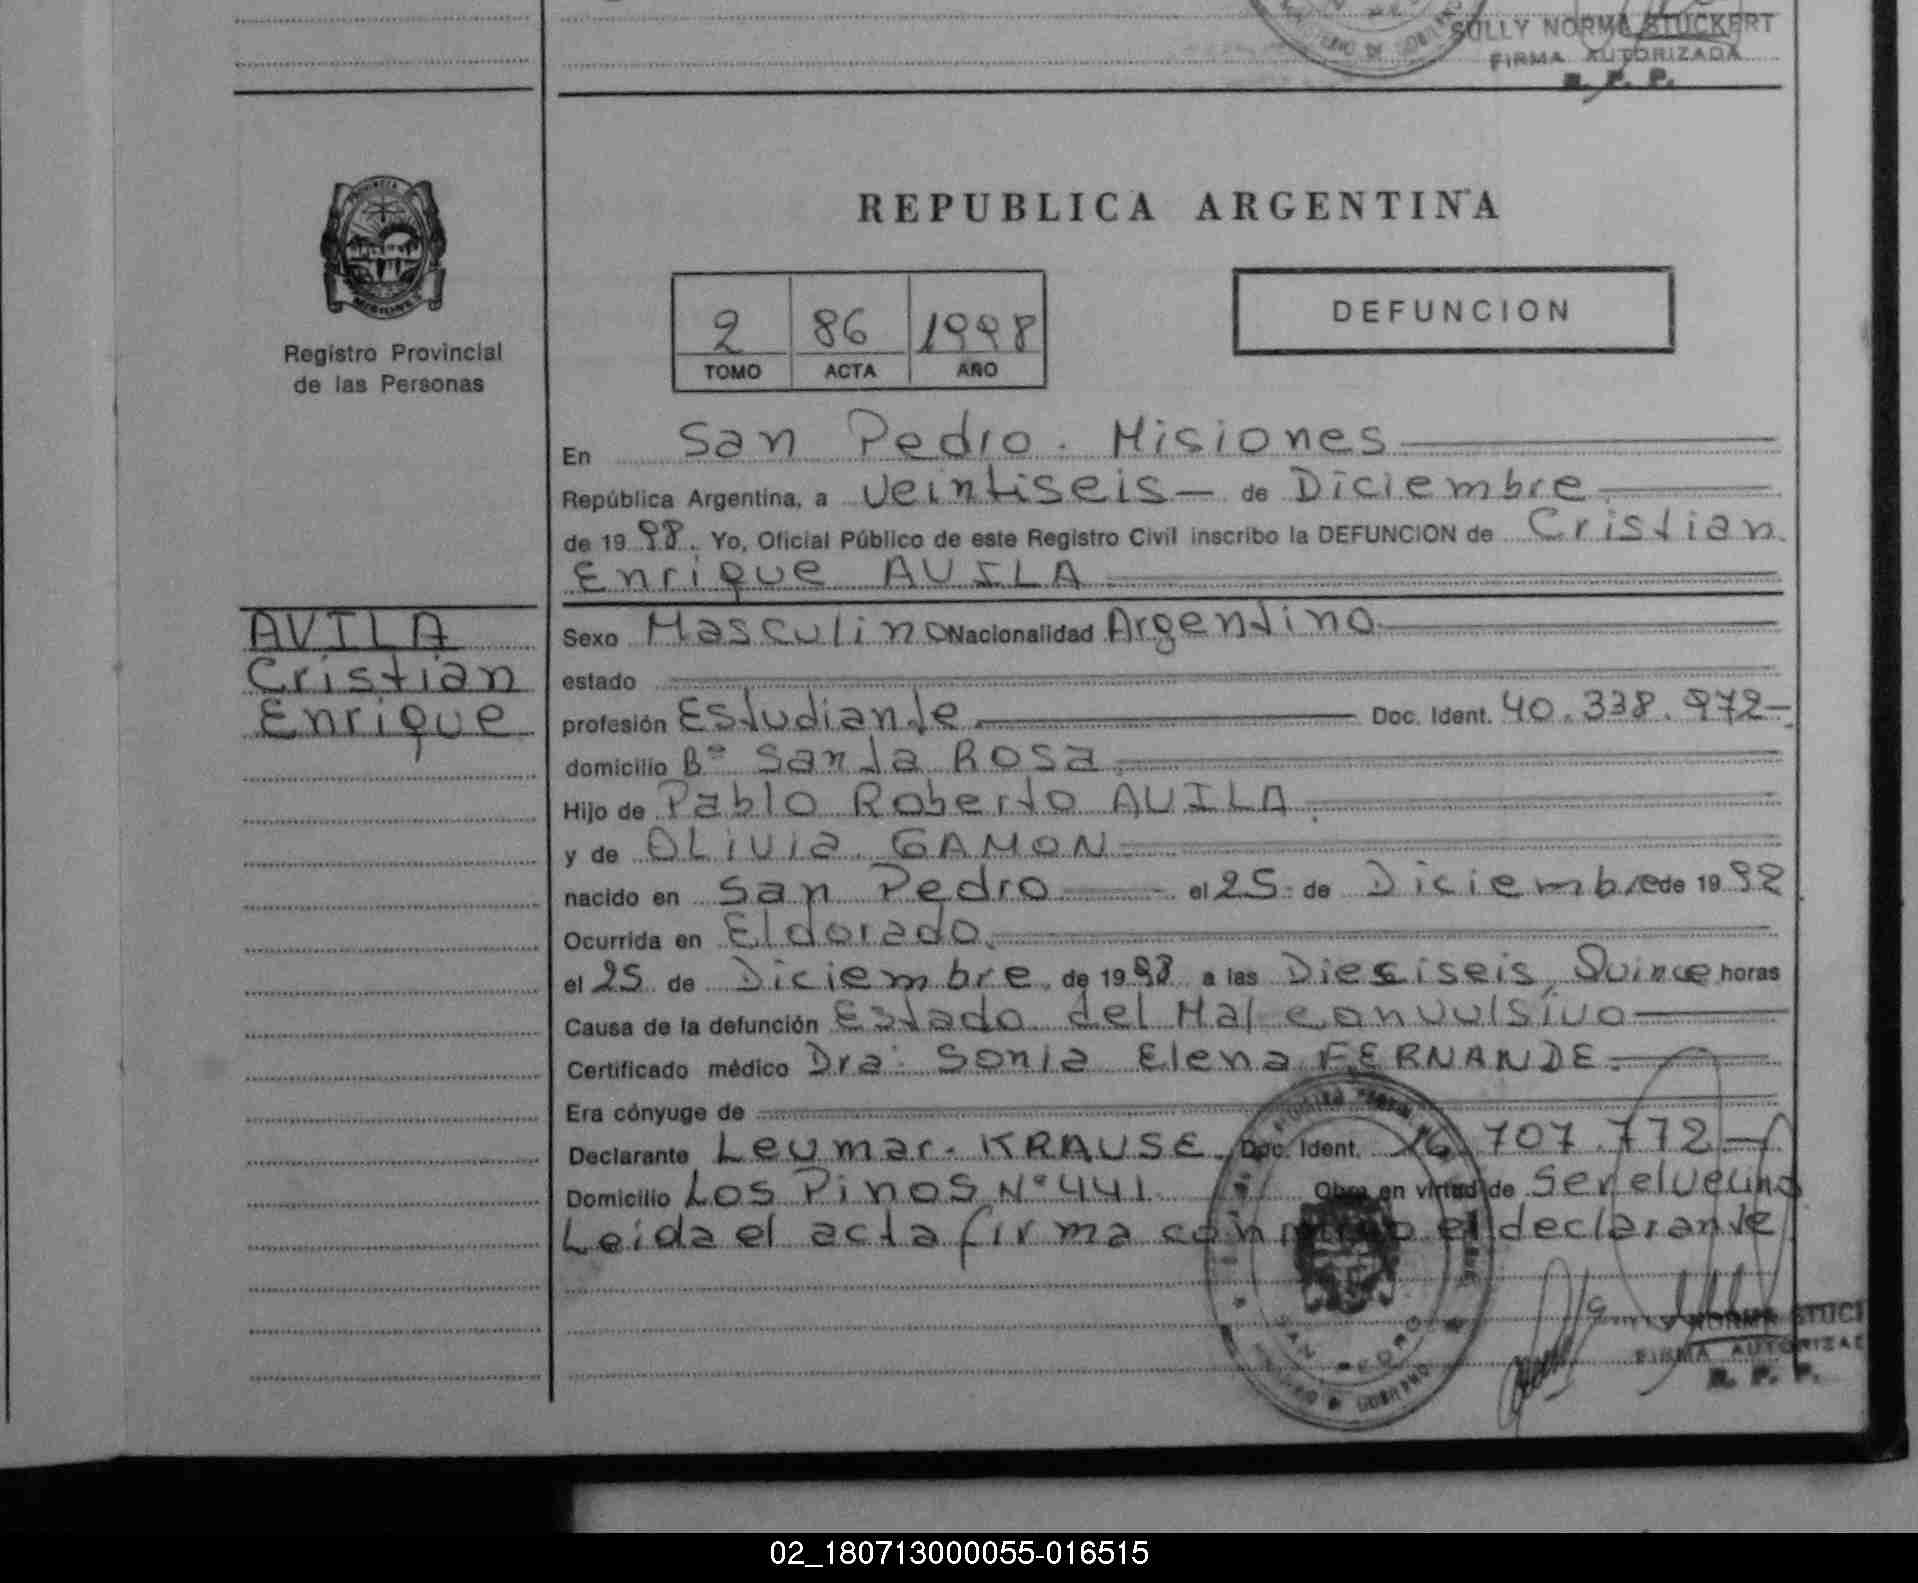 SULLY NORMA STUCKERT
FIRMA AUTORIZADA
R. P. P.
Registro Provincial
de las Personas
REPUBLICA ARGENTINA
2 86 1998
TOMO ACTA AÑO
DEFUNCION
En San Pedro. Misiones
República Argentina, a veintiseis — de Diciembre
de 1998. Yo, Oficial Público de este Registro Civil inscribo la DEFUNCION de Cristian
Enrique AVILA
AVILA
Cristian
Enrique
Sexo Masculino Nacionalidad Argentino
estado
profesión Estudiante Doc. Ident. 40.338.972-
domicilio Bº Santa Rosa
Hijo de Pablo Roberto AVILA
y de OLivia GAMON
nacido en San Pedro el 25 de Diciembre de 1992
Ocurrida en Eldorado
el 25 de Diciembre de 1998 a las Dieciseis, Quince horas
Causa de la defunción Estado del Mal convulsivo
Certificado médico Dra. Sonia Elena FERNANDE
Era cónyuge de
Declarante Leumar KRAUSE Doc. Ident. 16.707.772
Domicilio Los Pinos Nº 441 Obra en virtud de ser el vecino
Leida el acta firma conmigo el declarante
SAN PEDRO
NORMA STUCK
FIRMA AUTORIZAD
R. P. P.
02_180713000055-016515